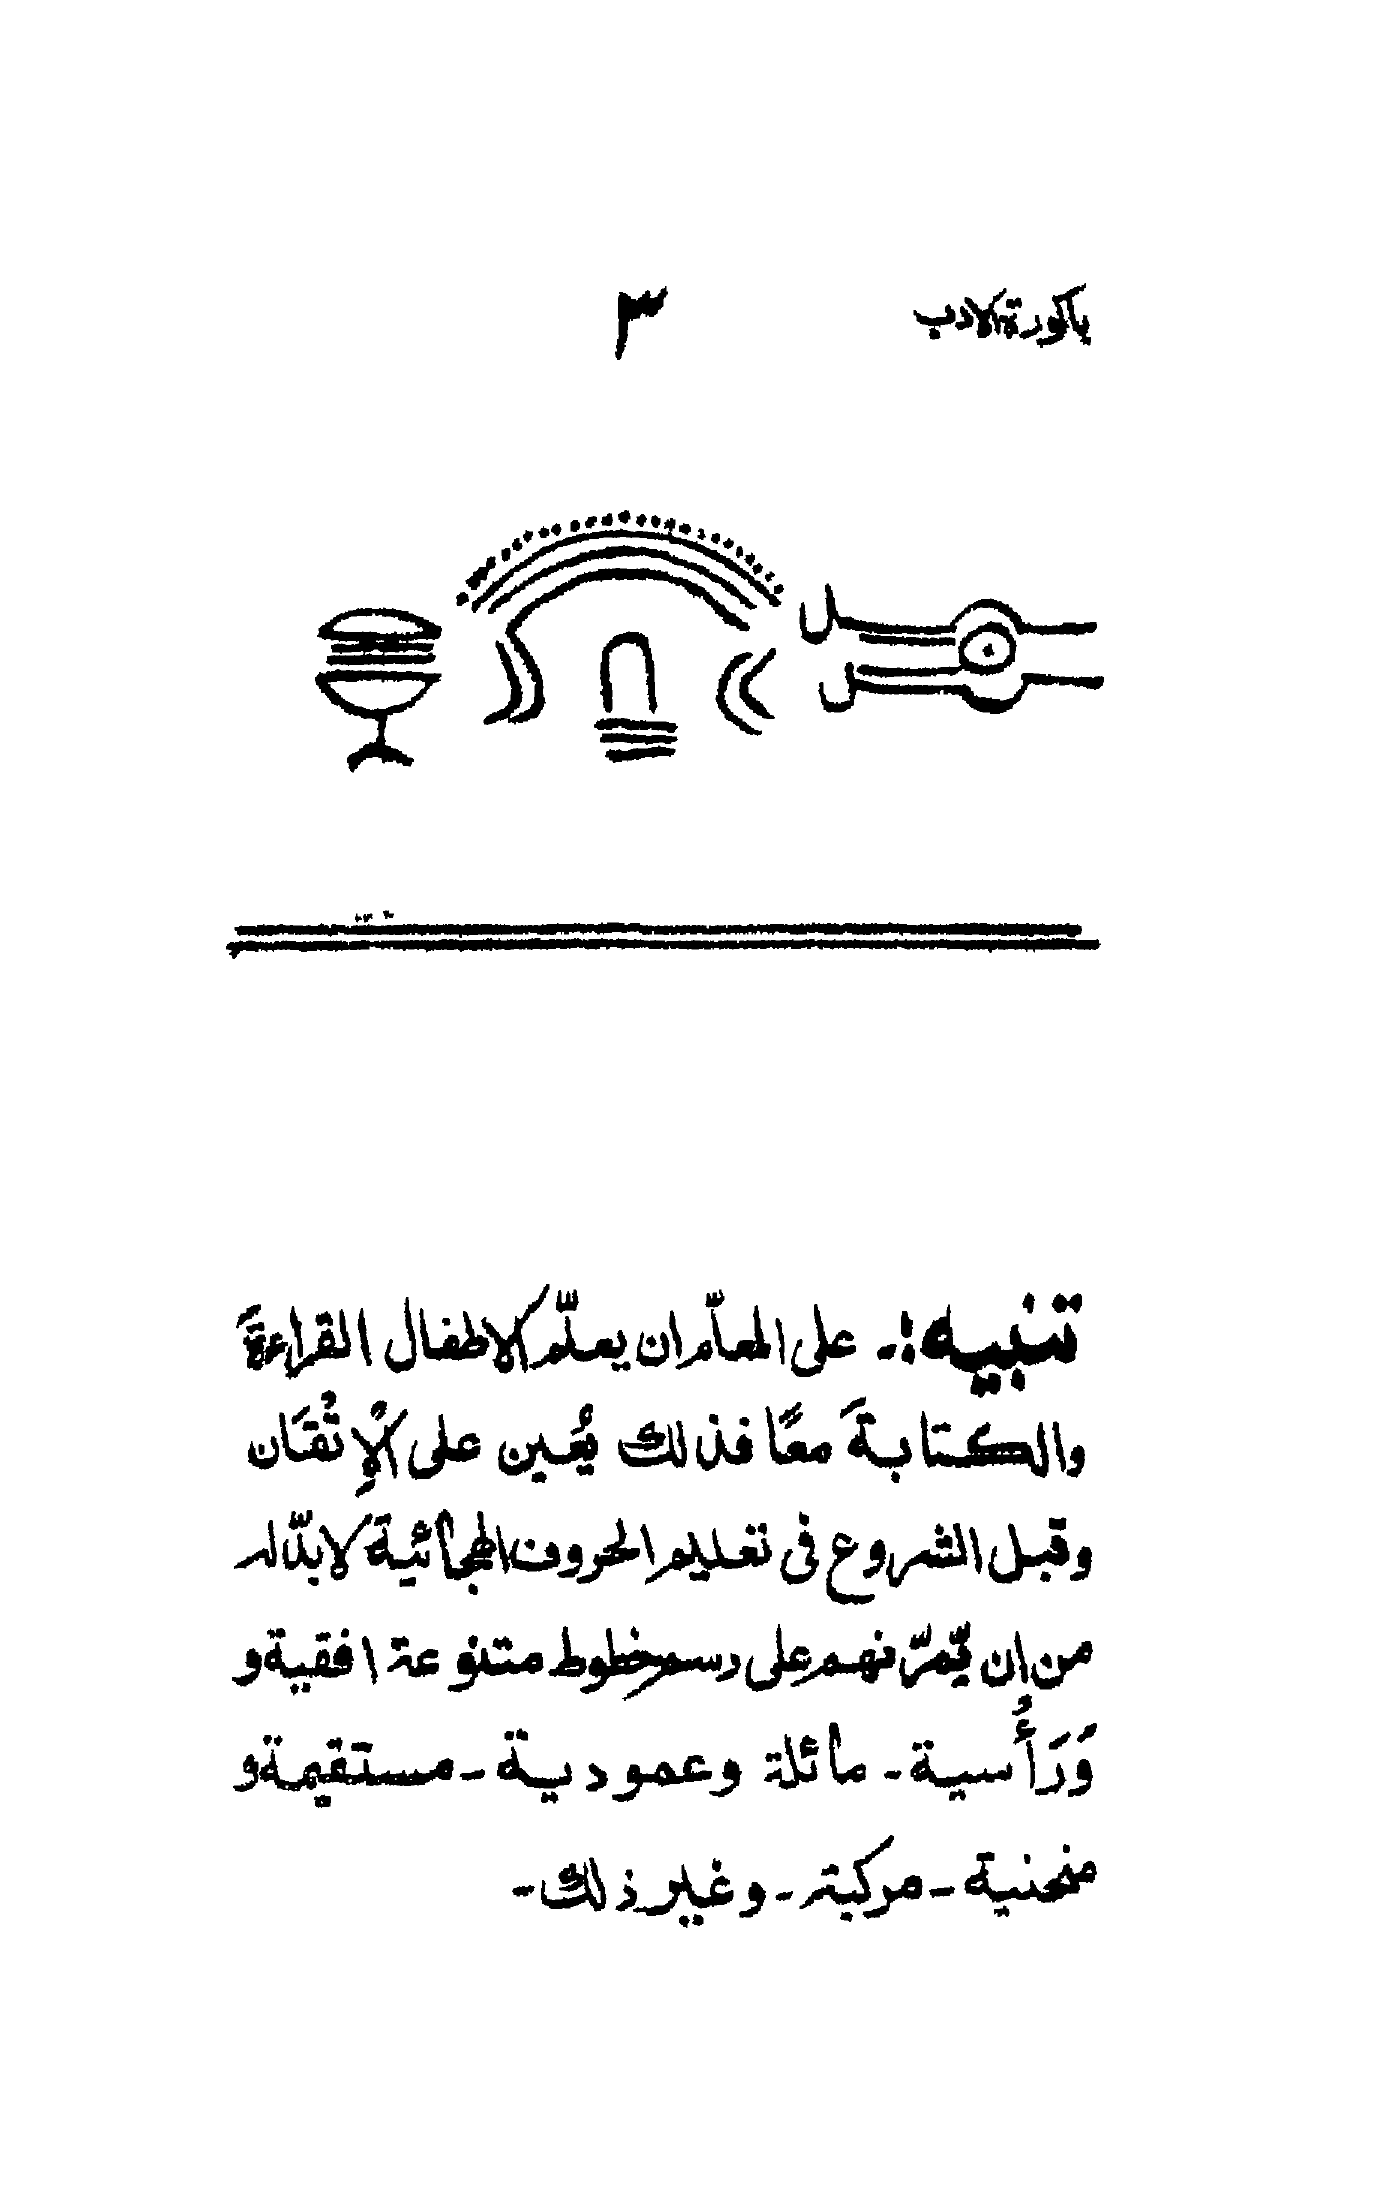 باكورة الادب
٣
تنبيه:- على المعلّم ان يعلّم الاطفال القراءةَ
والكتابةَ معًا فذلك يُعين على الْإِتْقَان
وقبل الشروع في تعليم الحروف الهجائية لا بدّ له
من ان يمّرّنهم على رسم خطوط متنوعة افقية و
وَرَأُسية - مائلة وعمودية - مستقيمة و
منحنية - مركبة - وغير ذلك -